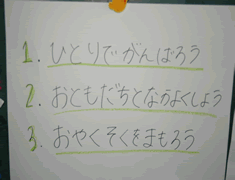 1. ひとりでがんばろう
2. おともだちとなかよくしよう
3. おやくそくをまもろう